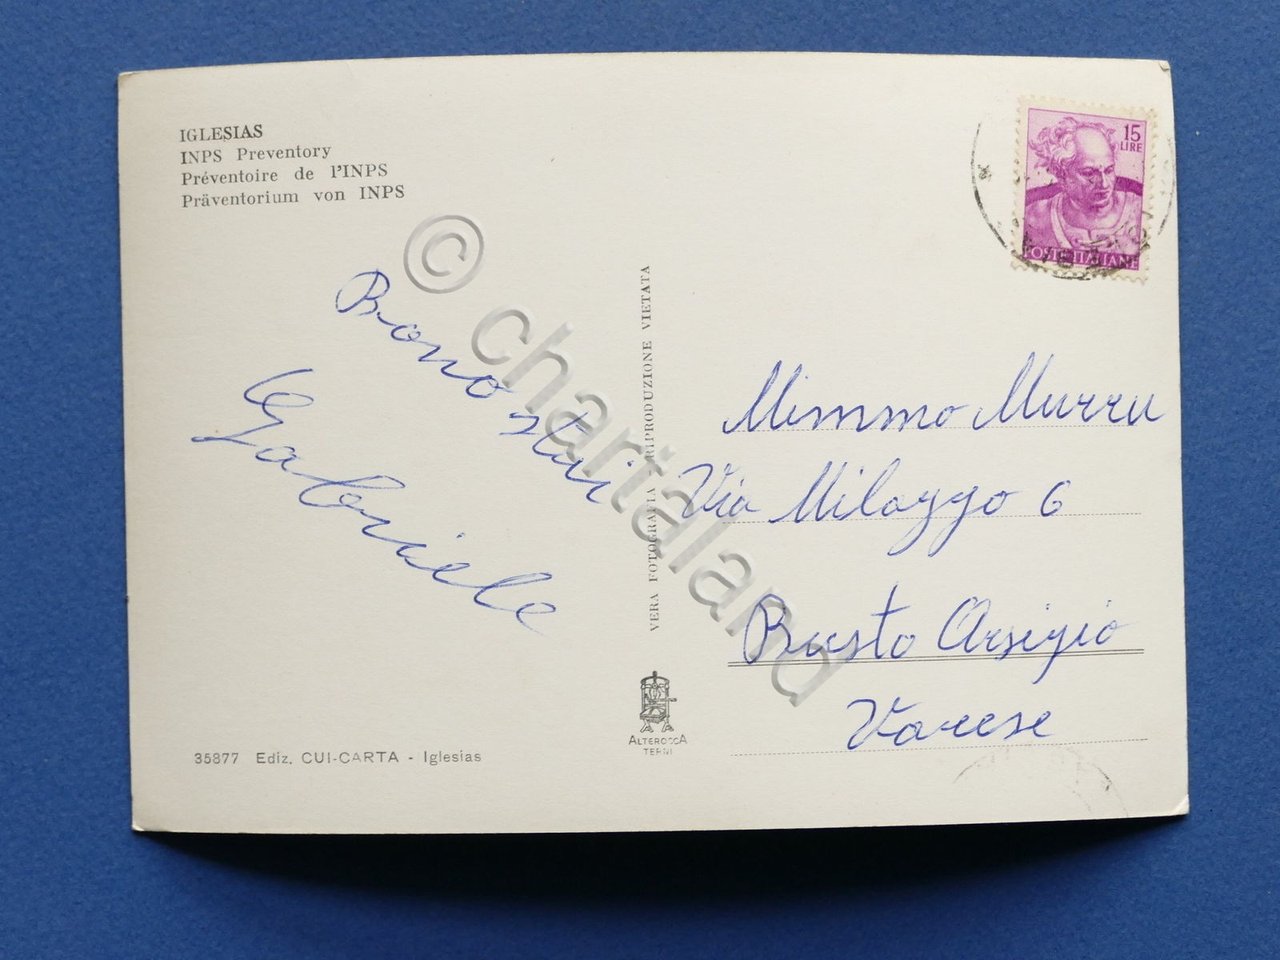 IGLESIAS
INPS Preventory
Préventoire de l'INPS
Präventorium von INPS
15
LIRE
POSTE ITALIANE
Bono stai
Gabriele
VERA FOTOGRAFIA - RIPRODUZIONE VIETATA
Mimmo Murru
Via Milazzo 6
Busto Arsizio
Varese
ALTEROCCA
TERNI
35877 Ediz. CUI-CARTA - Iglesias
© chartaland